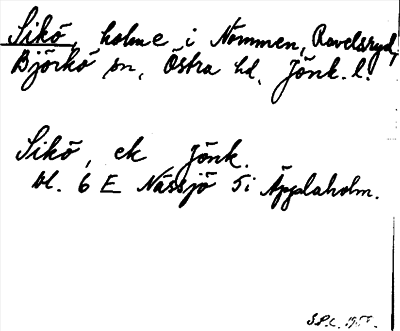 Sikö, holme i Nömmen, Ravelsryd,
Björkö sn, Östra hd, Jönk. l.
Sikö, ek Jönk.
bl. 6 E Nässjö 5i Äpplaholm.